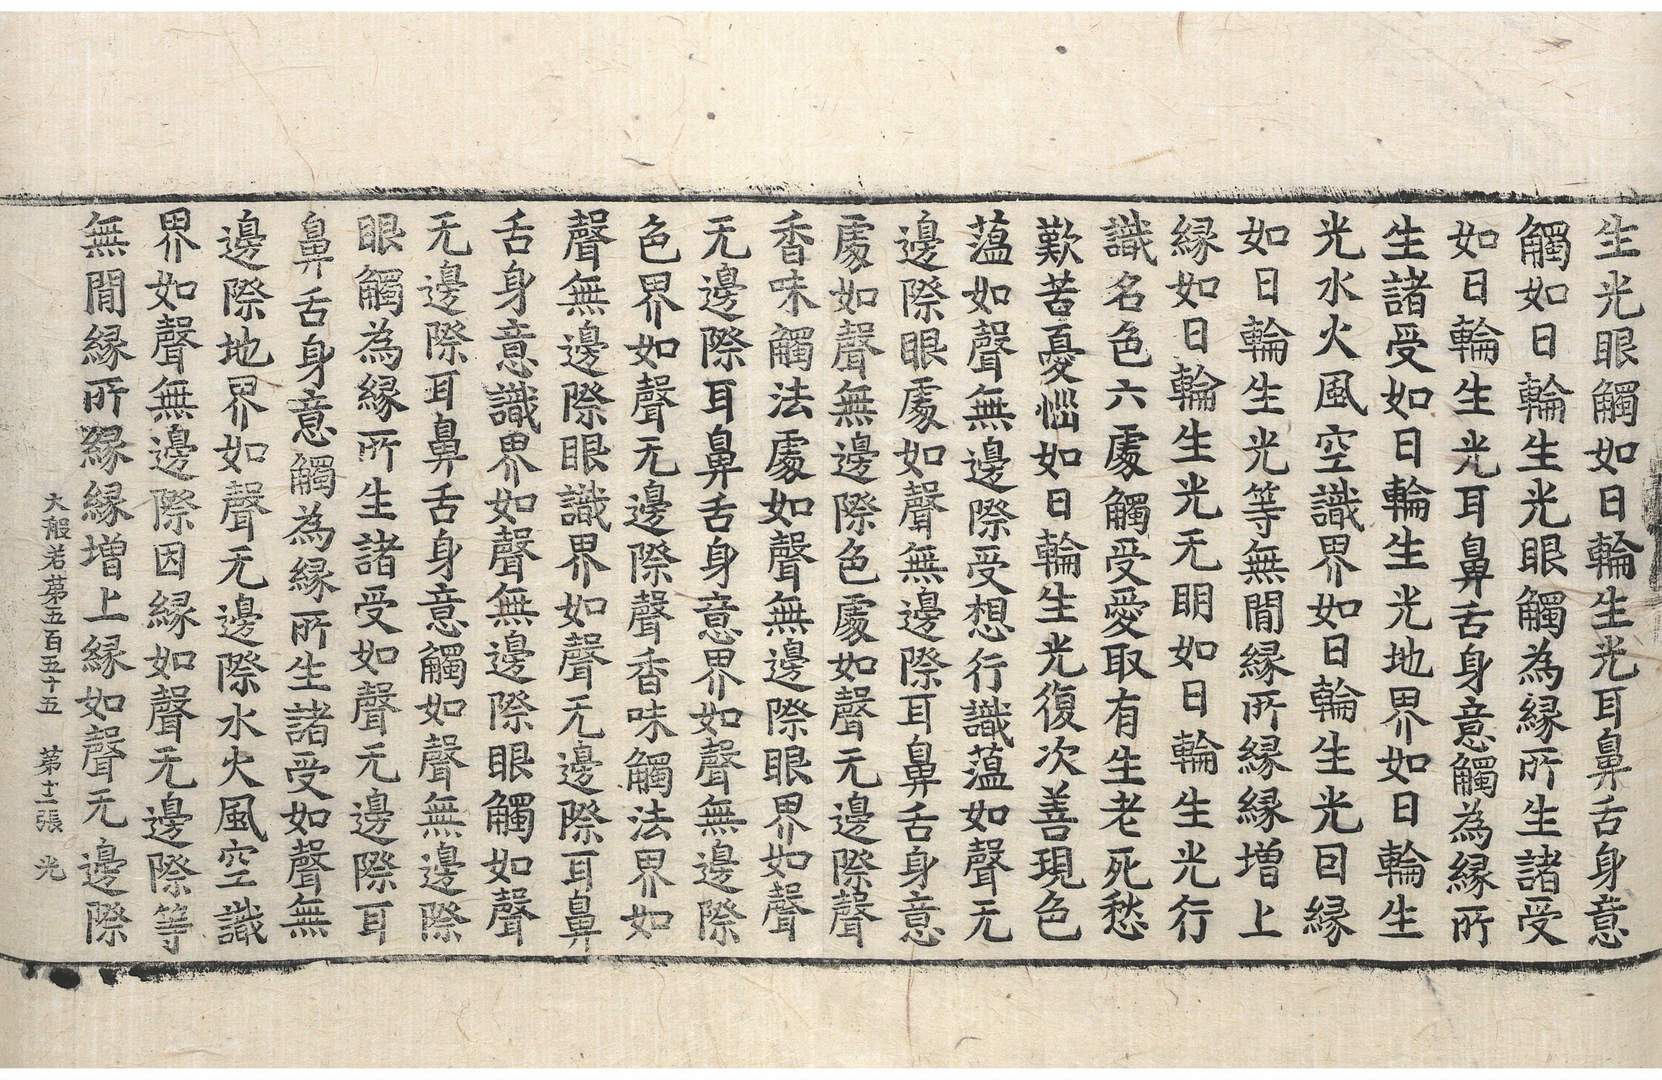 生光眼觸如日輪生光耳鼻舌身意
觸如日輪生光眼觸為縁所生諸受
如日輪生光耳鼻舌身意觸為縁所
生諸受如日輪生光地界如日輪生
光水火風空識界如日輪生光因縁
如日輪生光等無間縁所縁縁增上
縁如日輪生光无明如日輪生光行
識名色六處觸受愛取有生老死愁
歎苦憂惱如日輪生光復次善現色
薀如聲無邊際受想行識薀如聲无
邊際眼處如聲無邊際耳鼻舌身意
處如聲無邊際色處如聲无邊際聲
香味觸法處如聲無邊際眼界如聲
无邊際耳鼻舌身意界如聲無邊際
色界如聲无邊際聲香味觸法界如
聲無邊際眼識界如聲无邊際耳鼻
舌身意識界如聲無邊際眼觸如聲
无邊際耳鼻舌身意觸如聲無邊際
眼觸為縁所生諸受如聲无邊際耳
鼻舌身意觸為縁所生諸受如聲無
邊際地界如聲无邊際水火風空識
界如聲無邊際因縁如聲无邊際等
無間縁所縁縁增上縁如聲无邊際
大般若第五百五十五 第十二張 光